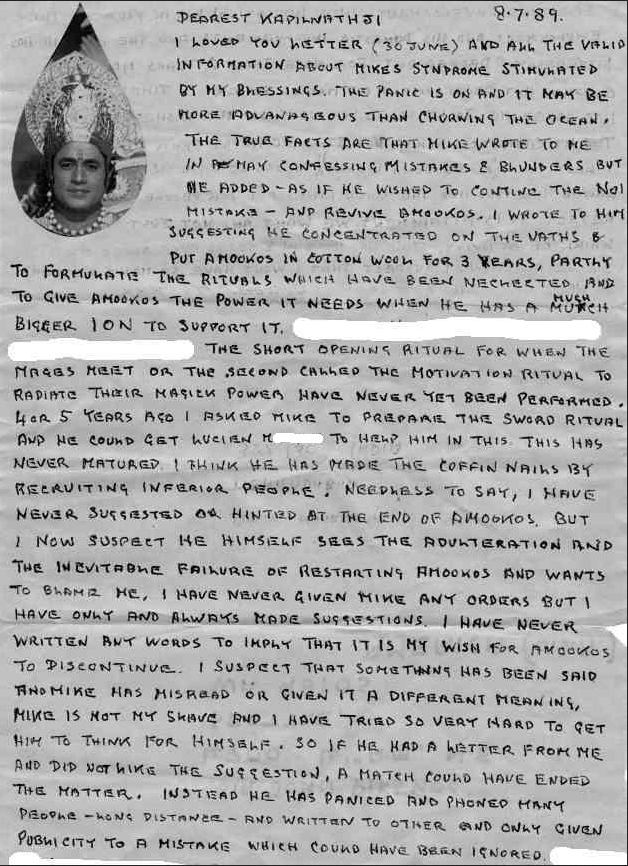 DEAREST KAPILNATHJI 8.7.89.
I LOVED YOU LETTER (30 JUNE) AND ALL THE VALID
INFORMATION ABOUT MIKES SYNDROME STIMULATED
BY MY BLESSINGS. THE PANIC IS ON AND IT MAY BE
MORE ADVANAGEOUS THAN CHURNING THE OCEAN.
THE TRUE FACTS ARE THAT MIKE WROTE TO ME
IN MAY CONFESSING MISTAKES & BLUNDERS BUT
HE ADDED - AS IF HE WISHED TO CONTINE THE NO1
MISTAKE - AND REVIVE AMOOKOS. I WROTE TO HIM
SUGGESTING HE CONCENTRATED ON THE VATHS &
PUT AMOOKOS IN COTTON WOOL FOR 3 YEARS, PARTLY
TO FORMULATE THE RITUALS WHICH HAVE BEEN NEGLECTED AND
TO GIVE AMOOKOS THE POWER IT NEEDS WHEN HE HAS A MUCH
BIGGER ION TO SUPPORT IT.
THE SHORT OPENING RITUAL FOR WHEN THE
MAGES MEET OR THE SECOND CALLED THE MOTIVATION RITUAL TO
RADIATE THEIR MAGICK POWER HAVE NEVER YET BEEN PERFORMED.
4 OR 5 YEARS AGO I ASKED MIKE TO PREPARE THE SWORD RITUAL
AND HE COULD GET LUCIEN M TO HELP HIM IN THIS. THIS HAS
NEVER MATURED. I THINK HE HAS MADE THE COFFIN NAILS BY
RECRUITING INFERIOR PEOPLE. NEEDLESS TO SAY, I HAVE
NEVER SUGGESTED OR HINTED AT THE END OF AMOOKOS. BUT
I NOW SUSPECT HE HIMSELF SEES THE ADULTERATION AND
THE INEVITABLE FAILURE OF RESTARTING AMOOKOS AND WANTS
TO BLAME ME. I HAVE NEVER GIVEN MIKE ANY ORDERS BUT I
HAVE ONLY AND ALWAYS MADE SUGGESTIONS. I HAVE NEVER
WRITTEN ANY WORDS TO IMPLY THAT IT IS MY WISH FOR AMOOKOS
TO DISCONTINUE. I SUSPECT THAT SOMETHING HAS BEEN SAID
AND MIKE HAS MISREAD OR GIVEN IT A DIFFERENT MEANING,
MIKE IS NOT MY SLAVE AND I HAVE TRIED SO VERY HARD TO GET
HIM TO THINK FOR HIMSELF. SO IF HE HAD A LETTER FROM ME
AND DID NOT LIKE THE SUGGESTION, A MATCH COULD HAVE ENDED
THE MATTER. INSTEAD HE HAS PANICED AND PHONED MANY
PEOPLE - LONG DISTANCE - AND WRITTEN TO OTHER AND ONLY GIVEN
PUBLICITY TO A MISTAKE WHICH COULD HAVE BEEN IGNORED.